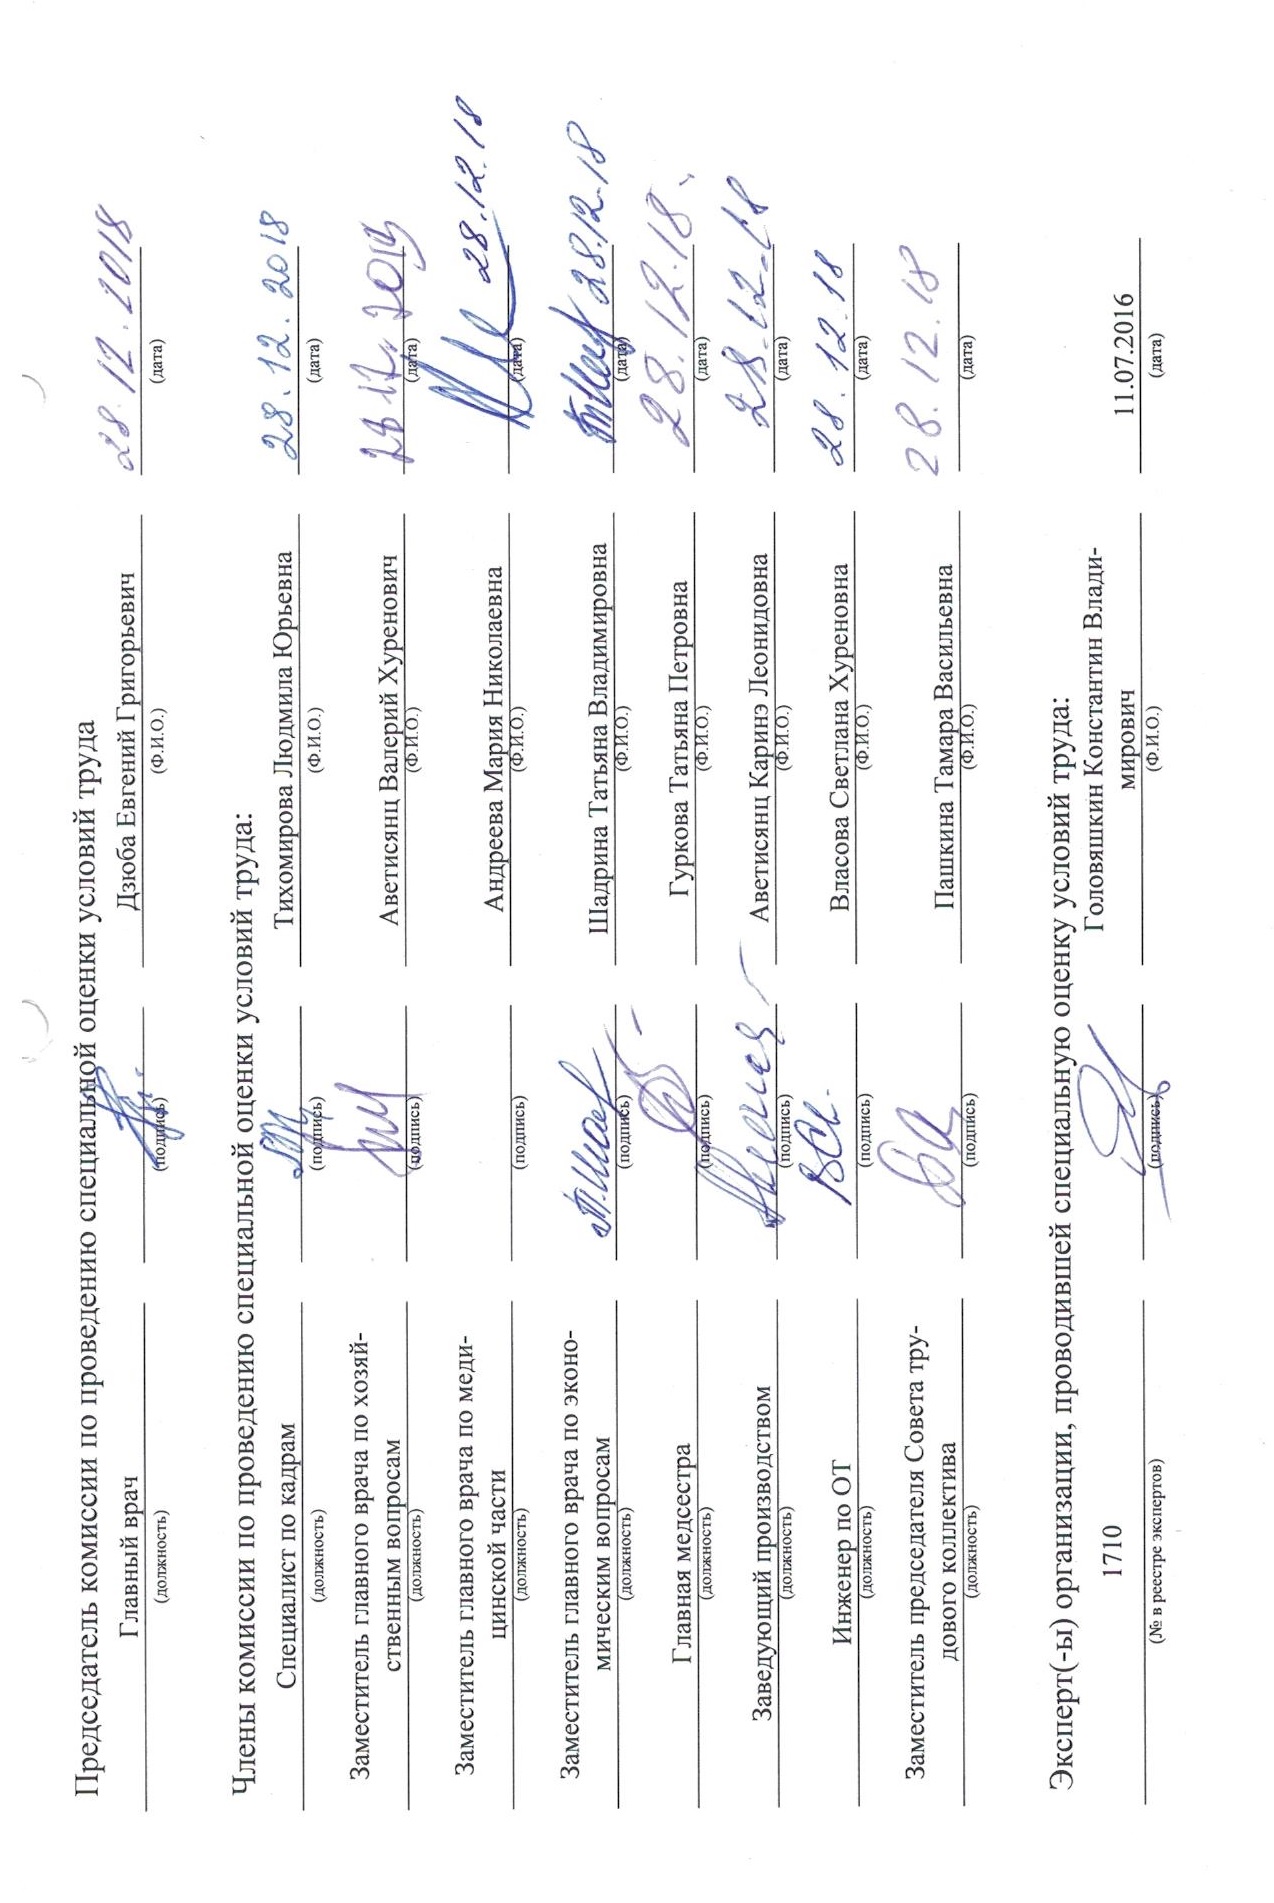 Председатель комиссии по проведению специальной оценки условий труда
Главный врач Дзюба Евгений Григорьевич 28.12.2018
(должность) (подпись) (Ф.И.О.) (дата)
Члены комиссии по проведению специальной оценки условий труда:
Специалист по кадрам Тихомирова Людмила Юрьевна 28.12.2018
(должность) (подпись) (Ф.И.О.) (дата)
Заместитель главного врача по хозяй-
ственным вопросам Аветисянц Валерий Хуренович
(должность) (подпись) (Ф.И.О.) (дата)
Заместитель главного врача по меди-
цинской части Андреева Мария Николаевна 28.12.18
(должность) (подпись) (Ф.И.О.) (дата)
Заместитель главного врача по эконо-
мическим вопросам Шадрина Татьяна Владимировна 28.12.18
(должность) (подпись) (Ф.И.О.) (дата)
Главная медсестра Гуркова Татьяна Петровна 28.12.18.
(должность) (подпись) (Ф.И.О.) (дата)
Заведующий производством Аветисянц Каринэ Леонидовна 28.12.18
(должность) (подпись) (Ф.И.О.) (дата)
Инженер по ОТ Власова Светлана Хуреновна 28.12.18
(должность) (подпись) (Ф.И.О.) (дата)
Заместитель председателя Совета тру-
дового коллектива Пашкина Тамара Васильевна 28.12.18
(должность) (подпись) (Ф.И.О.) (дата)
Эксперт(-ы) организации, проводившей специальную оценку условий труда:
1710 Головяшкин Константин Влади-
мирович 11.07.2016
(№ в реестре экспертов) (подпись) (Ф.И.О.) (дата)